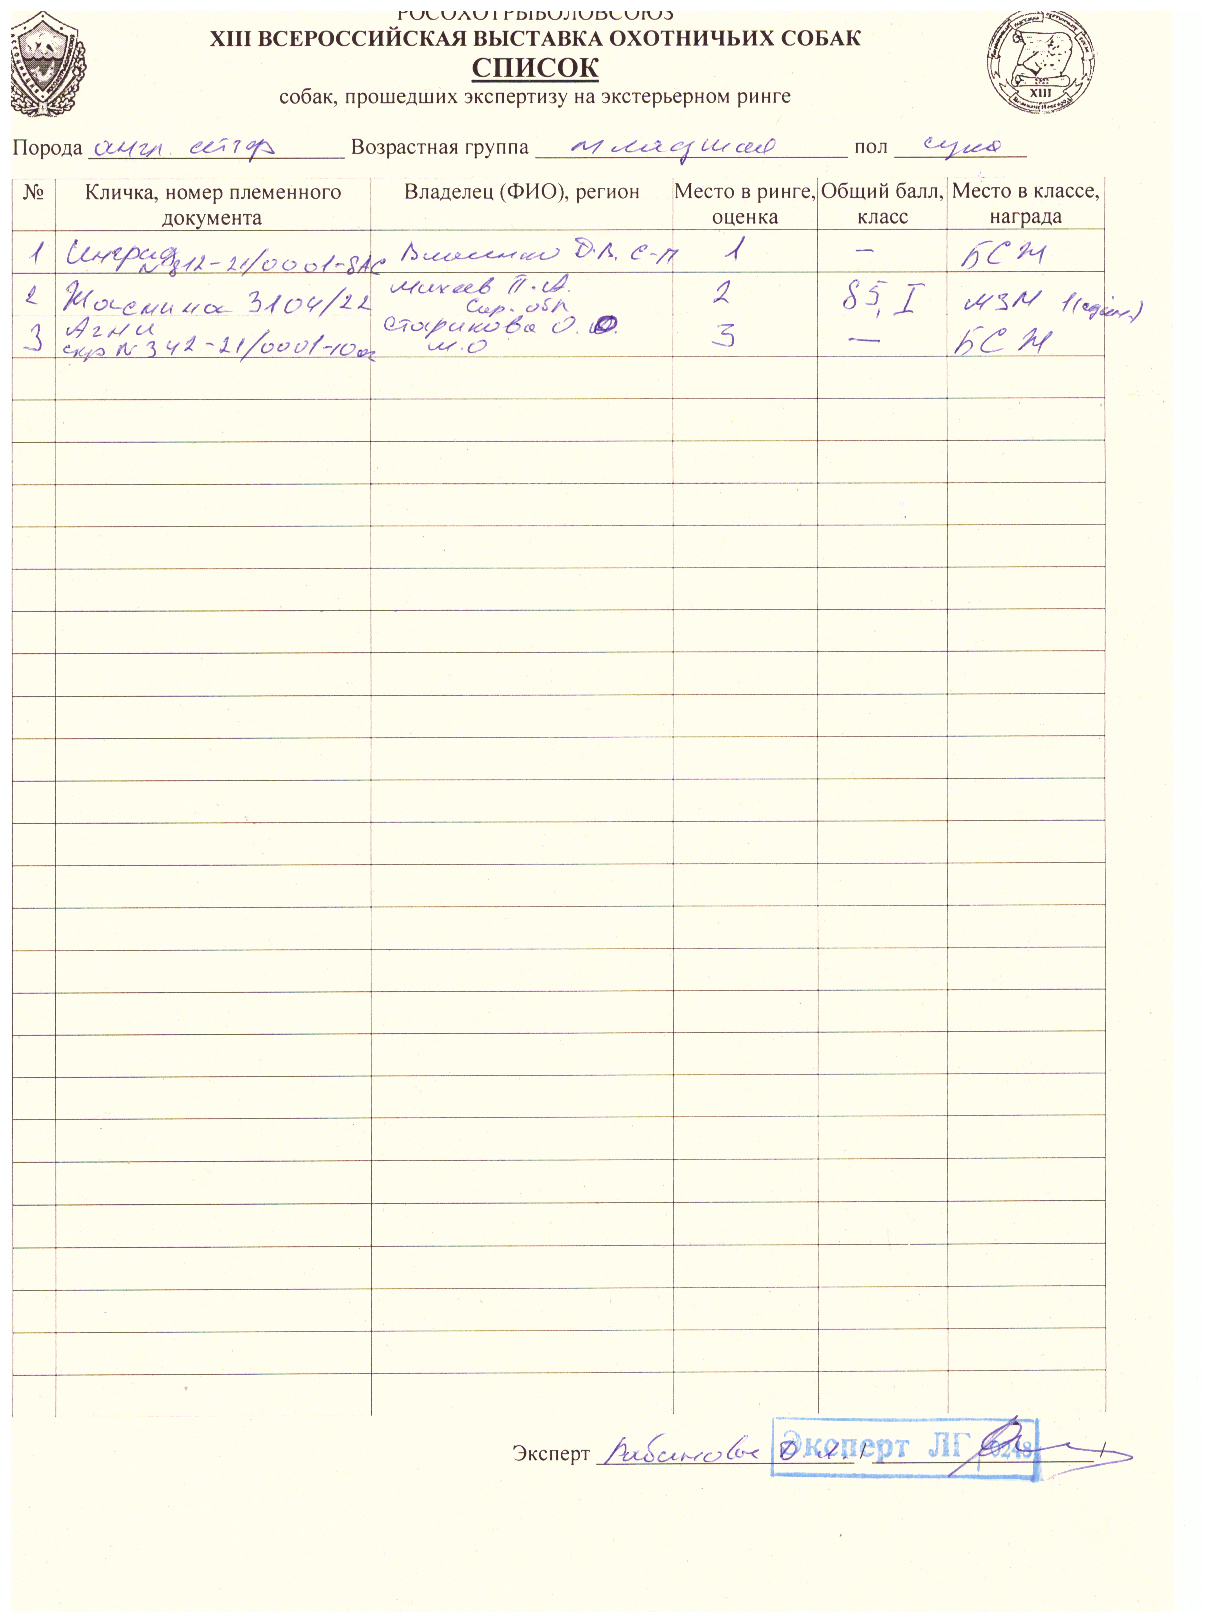 РОСОХОТРЫБОЛОВСОЮЗ
XIII ВСЕРОССИЙСКАЯ ВЫСТАВКА ОХОТНИЧЬИХ СОБАК
СПИСОК
собак, прошедших экспертизу на экстерьерном ринге
XIII
Порода англ. сеттер Возрастная группа младшая пол сука
№ Кличка, номер племенного документа Владелец (ФИО), регион Место в ринге, оценка Общий балл, класс Место в классе, награда
1 Ингрид Д.В. С-П 1 — БСЖ
2 Жасмина 3104/22 Михеев П.А. Сар. обл 2 85, I МЗМ
3 Агни № 342-21/0001-10 Старикова О. М.О 3 — БСЖ
Эксперт
Эксперт ЛГ 0248